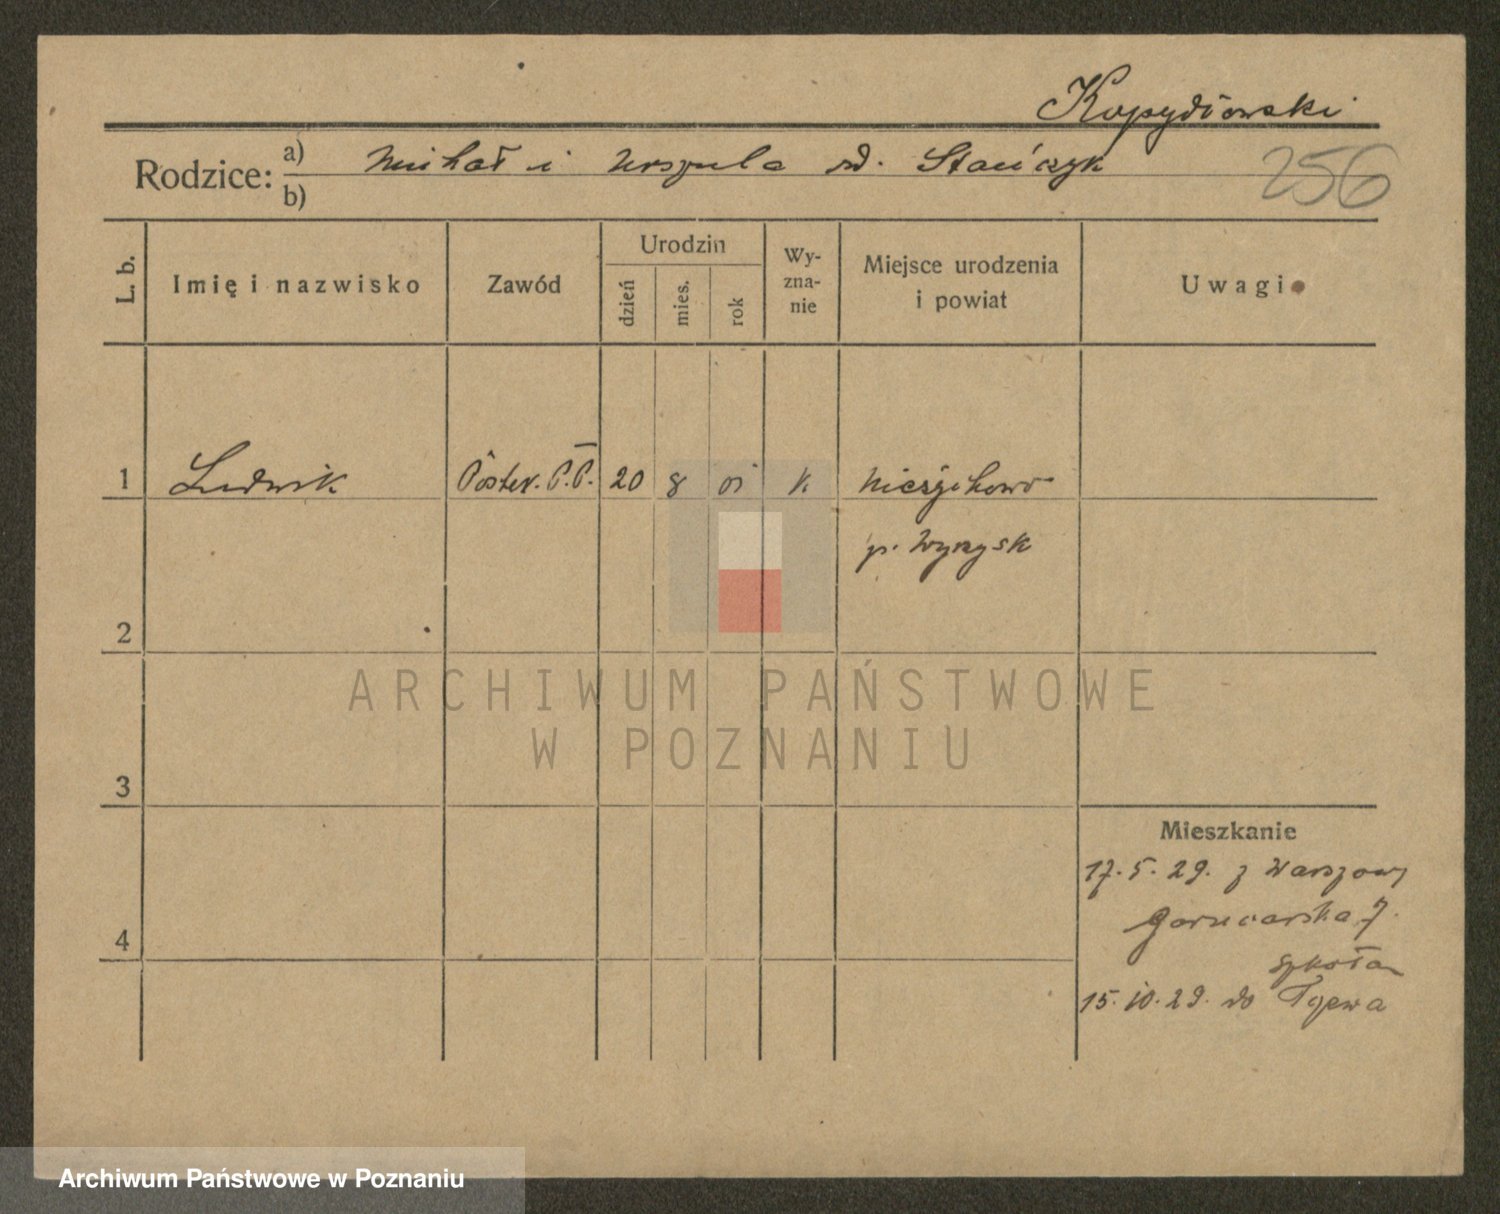 Kopydłowski
Rodzice: a) Michał i Urszula rd. Stańczyk
b)
256
L. b. Imię i nazwisko Zawód Urodzin dzień mies. rok Wy-zna-nie Miejsce urodzenia i powiat Uwagi
1 Ludwik Poster. P.P. 20 8 01 k.
p. Wyrzysk
2
3
4
Mieszkanie
17.5.29. z Warszawy
7.
szkoła
15.10.29. do
ARCHIWUM PAŃSTWOWE
W POZNANIU
Archiwum Państwowe w Poznaniu